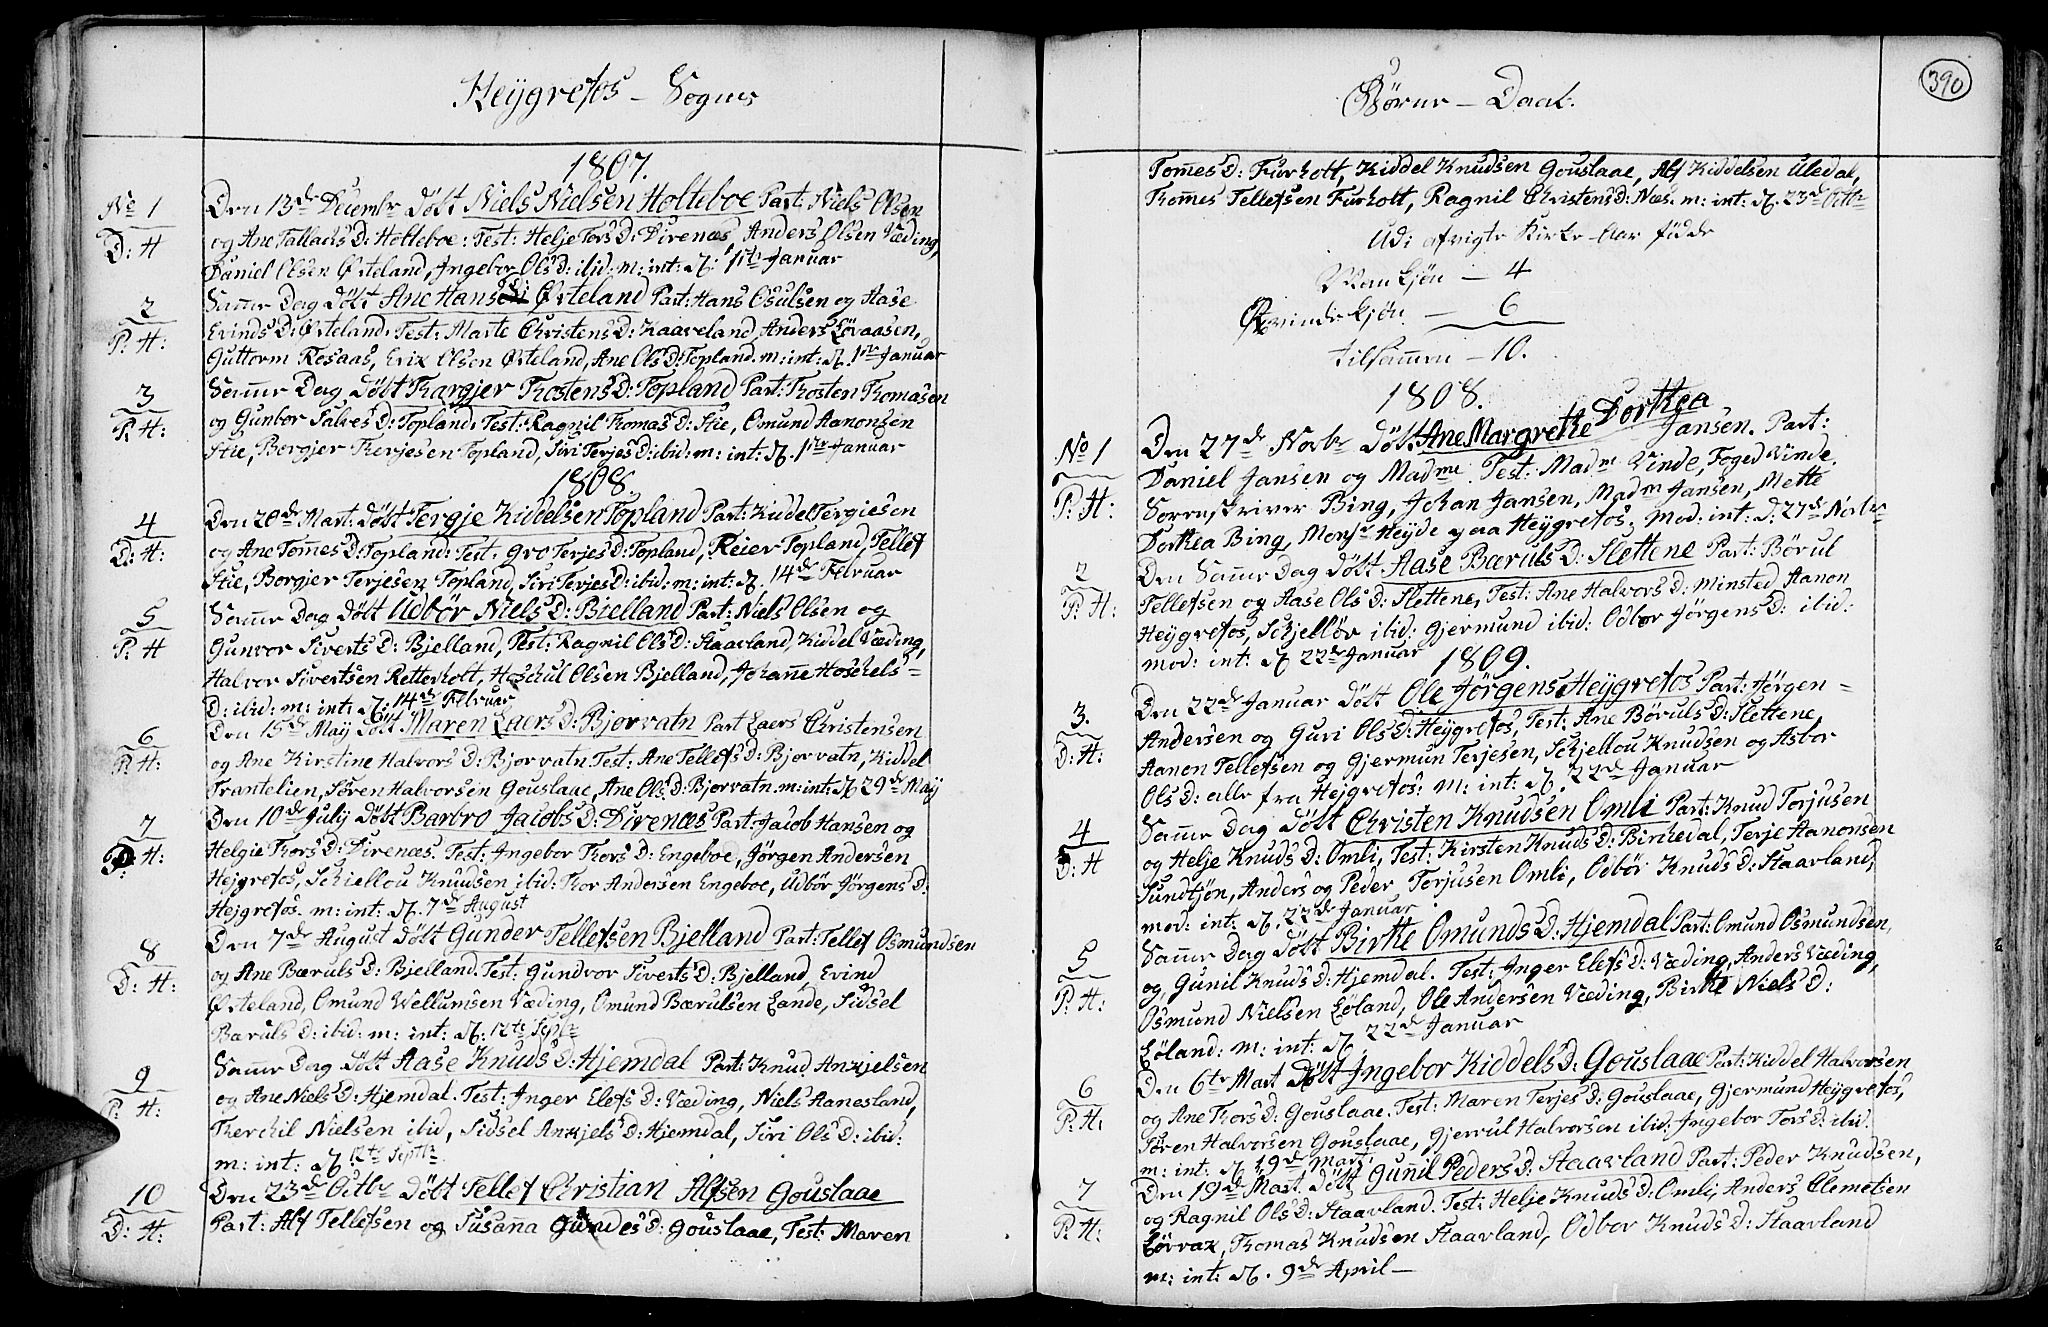 Heÿgrefos – Sogns
1807.
No 1
Den 13de Decembr døbt Niels Nielsen Holteboe Part: Niels Olsen
D: H
og Ane Tallachs D: Holteboe: Test: Helje Tors D: Direnæs, Anders Olsen Væding,
Daniel Olsen Østeland, Ingebor Ols D: ibid: m: int: d. 1ste Januar
2
Samme Dag døbt Ane Hans D: Østeland Part: Hans Osulsen og Aase
P: H:
Evinds D: Østeland. Test: Marte Christens D: Kaaveland, Anders Løvaasen,
Guttorm Rosaas, Erik Olsen Østeland, Ane Ols D: Topland. m: int: d. 1ste Januar
3
Samme Dag, døbt Thargjer Thostens D: Topland Part: Thosten Thomasen
P: H:
og Gunbor Salves D: Topland. Test: Ragnil Thomas D: Stie, Omund Aanonsen
Stie, Borgjer Therjesen Topland, Siri Terjes D: ibid: m: int: d. 1ste Januar
1808
4
Den 20de Mart. døbt Tergje Kiddelsen Topland Part: Kiddel Tergiesen
D: H:
og Ane Tommes D: Topland: Test: Gro Terjes D: Topland, Reier Topland, Tellef
Stie, Borgjer Terjesen Topland, Siri Terjes D: ibid: m: int: d. 14de Februar
5
Samme Dag døbt Udbør Niels D: Bielland Part: Niels Olsen og
P: H
Gunvor Siverts D: Bjelland, Test: Ragnil Ols D: Staavland, Kiddel Væding,
Halvor Sivertsen Retterholt, Hoschul Olsen Bjelland, Johanne Hoschels=
D: ibid: m: int: d. 14de Februar
6
Den 15de Maÿ døbt Maren Laers D: Bjorvatn Part Laers Christensen
P: H:
og Ane Kirstine Halvors D: Bjorvatn. Test: Ane Tellefs D: Bjorvatn, Kiddel
Trantelien, Søren Halvorsen Gouslaae, Ane Ols D: Bjorvatn. m: int: d. 29de Maÿ
7
Den 10de Julÿ døbt Barbro Jacobs D: Direnæs Part: Jacob Hansen og
P: H:
Helgie Thors D: Direnæs. Test: Ingebor Thors D: Engeboe, Jørgen Andersen
Hejgrefos, Schiellou Knudsen ibid: Thor Andersen Engeboe, Udbør Jørgens D:
Hejgrefos. m: int: d. 7de August
8
Den 7de August døbt Gunder Tellefsen Bjelland Part: Tellef Osmundsen
D: H:
og Ane Bæruls D: Bjelland. Test: Gundvor Siverts D: Bjelland, Evind
Østeland, Omund Wellumsen Væding, Omund Bærulsen Lande, Sidsel
Bæruls D: ibid: m: int: d. 12te Septbr
9
Samme Dag døbt Aase Knuds D: Hjemdal Part: Knud Ankjelsen
P: H:
og Ane Niels D: Hjemdal. Test: Inger Elefs D: Væding, Niels Aanesland,
Therchil Nielsen ibid, Sidsel Ankjels D: Hjemdal, Siri Ols D: ibid:
m: int: d. 12te Septbr
10
Den 23de Octbr døbt Tellef Christian Alfsen Gouslaae
D: H:
Part: Alf Tellefsen og Susanna Gundes D: Gouslaae, Test: Maren
Børne – Daab.
390
Tommes D: Furholt, Kiddel Knudsen Gouslaae, Alf Kiddelsen Uledal,
Thommes Tellefsen Furholt, Ragnil Christens D: Næs. m: int: d. 23de Octbr
Udi afvigte Kirke-Aar fødde
Mankjøn – 4
Qvindekjøn – 6
tilsammen – 10.
1808.
No 1
Den 27de Novbr døbt Ane Margrethe Dorthea Jansen. Part:
P: H:
Daniel Jansen og Madme. Test: Madm Vinde, Foged Vinde,
Sorenskriver Bing, Johan Jansen, Madm Jansen, Mette
Dorthea Bing, Monsr Heyde paa Heÿgrefos. Mod: int: d: 27de Novbr
2
Den Samme Dag døbt Aase Bæruls D: Slettene Part: Børul
P: H:
Tellefsen og Aase Ols D: Slettene, Test: Ane Halvors D: Minsted, Aanon
Heÿgrefos, Schjelløv ibid: Gjermund ibid: Odbør Jørgens D: ibid:
mod: int: d. 22de Januar
1809.
3.
Den 22de Januar døbt Ole Jørgens. Heÿgrefos Part: Jørgen=
D: H:
Andersen og Guri Ols D: Heÿgrefos, Test: Ane Børuls D: Slettene,
Aanon Tellefsen og Gjermun Terjesen, Schjellou Knudsen og Asbor
Ols D: alle fra Hejgrefos: m: int: d. 22de Januar
4
Samme Dag døbt Christen Knudsen Omli Part: Knud Torjusen
D: H
og Helje Knuds D: Omli, Test: Kirsten Knuds D: Birkedal, Terje Aanonsen
Sundtjøn, Anders og Peder Torjusen Omli, Odbør Knuds D: Staavland,
mod: int: d. 22de Januar
5
Samme Dag døbt Birthe Omunds D: Hjemdal Part: Omund Osmundsen,
P: H:
og Gunil Knuds D: Hjemdal. Test: Inger Elefs D: Væding, Anders Væding,
Osmund Nielsen Løland, Ole Andersen Væding, Birthe Niels D:
Løland: m: int: d. 22de Januar
6
Den 6te Mart døbt Ingebor Kiddels D: Gouslaae Part: Kiddel Halvorsen
P: H:
og Ane Thors D: Gouslaae. Test: Maren Terjes D: Gouslaae, Gjermund Heÿgrefos,
Søren Halvorsen Gouslaae, Gjerrul Halvorsen ibid: Ingebor Tors D: ibid.
m: int: d. 19de Mart:
7
Den 19de Mart. døbt Gunil Peders D: Staavland Part: Peder Knudsen,
P: H:
og Ragnil Ols D: Staavland. Test: Helje Knuds D: Omli, Anders Clemetsen
Lørvax, Thomas Knudsen Staavland, Odbor Knuds D: Staavland
m: int: d. 9de April –